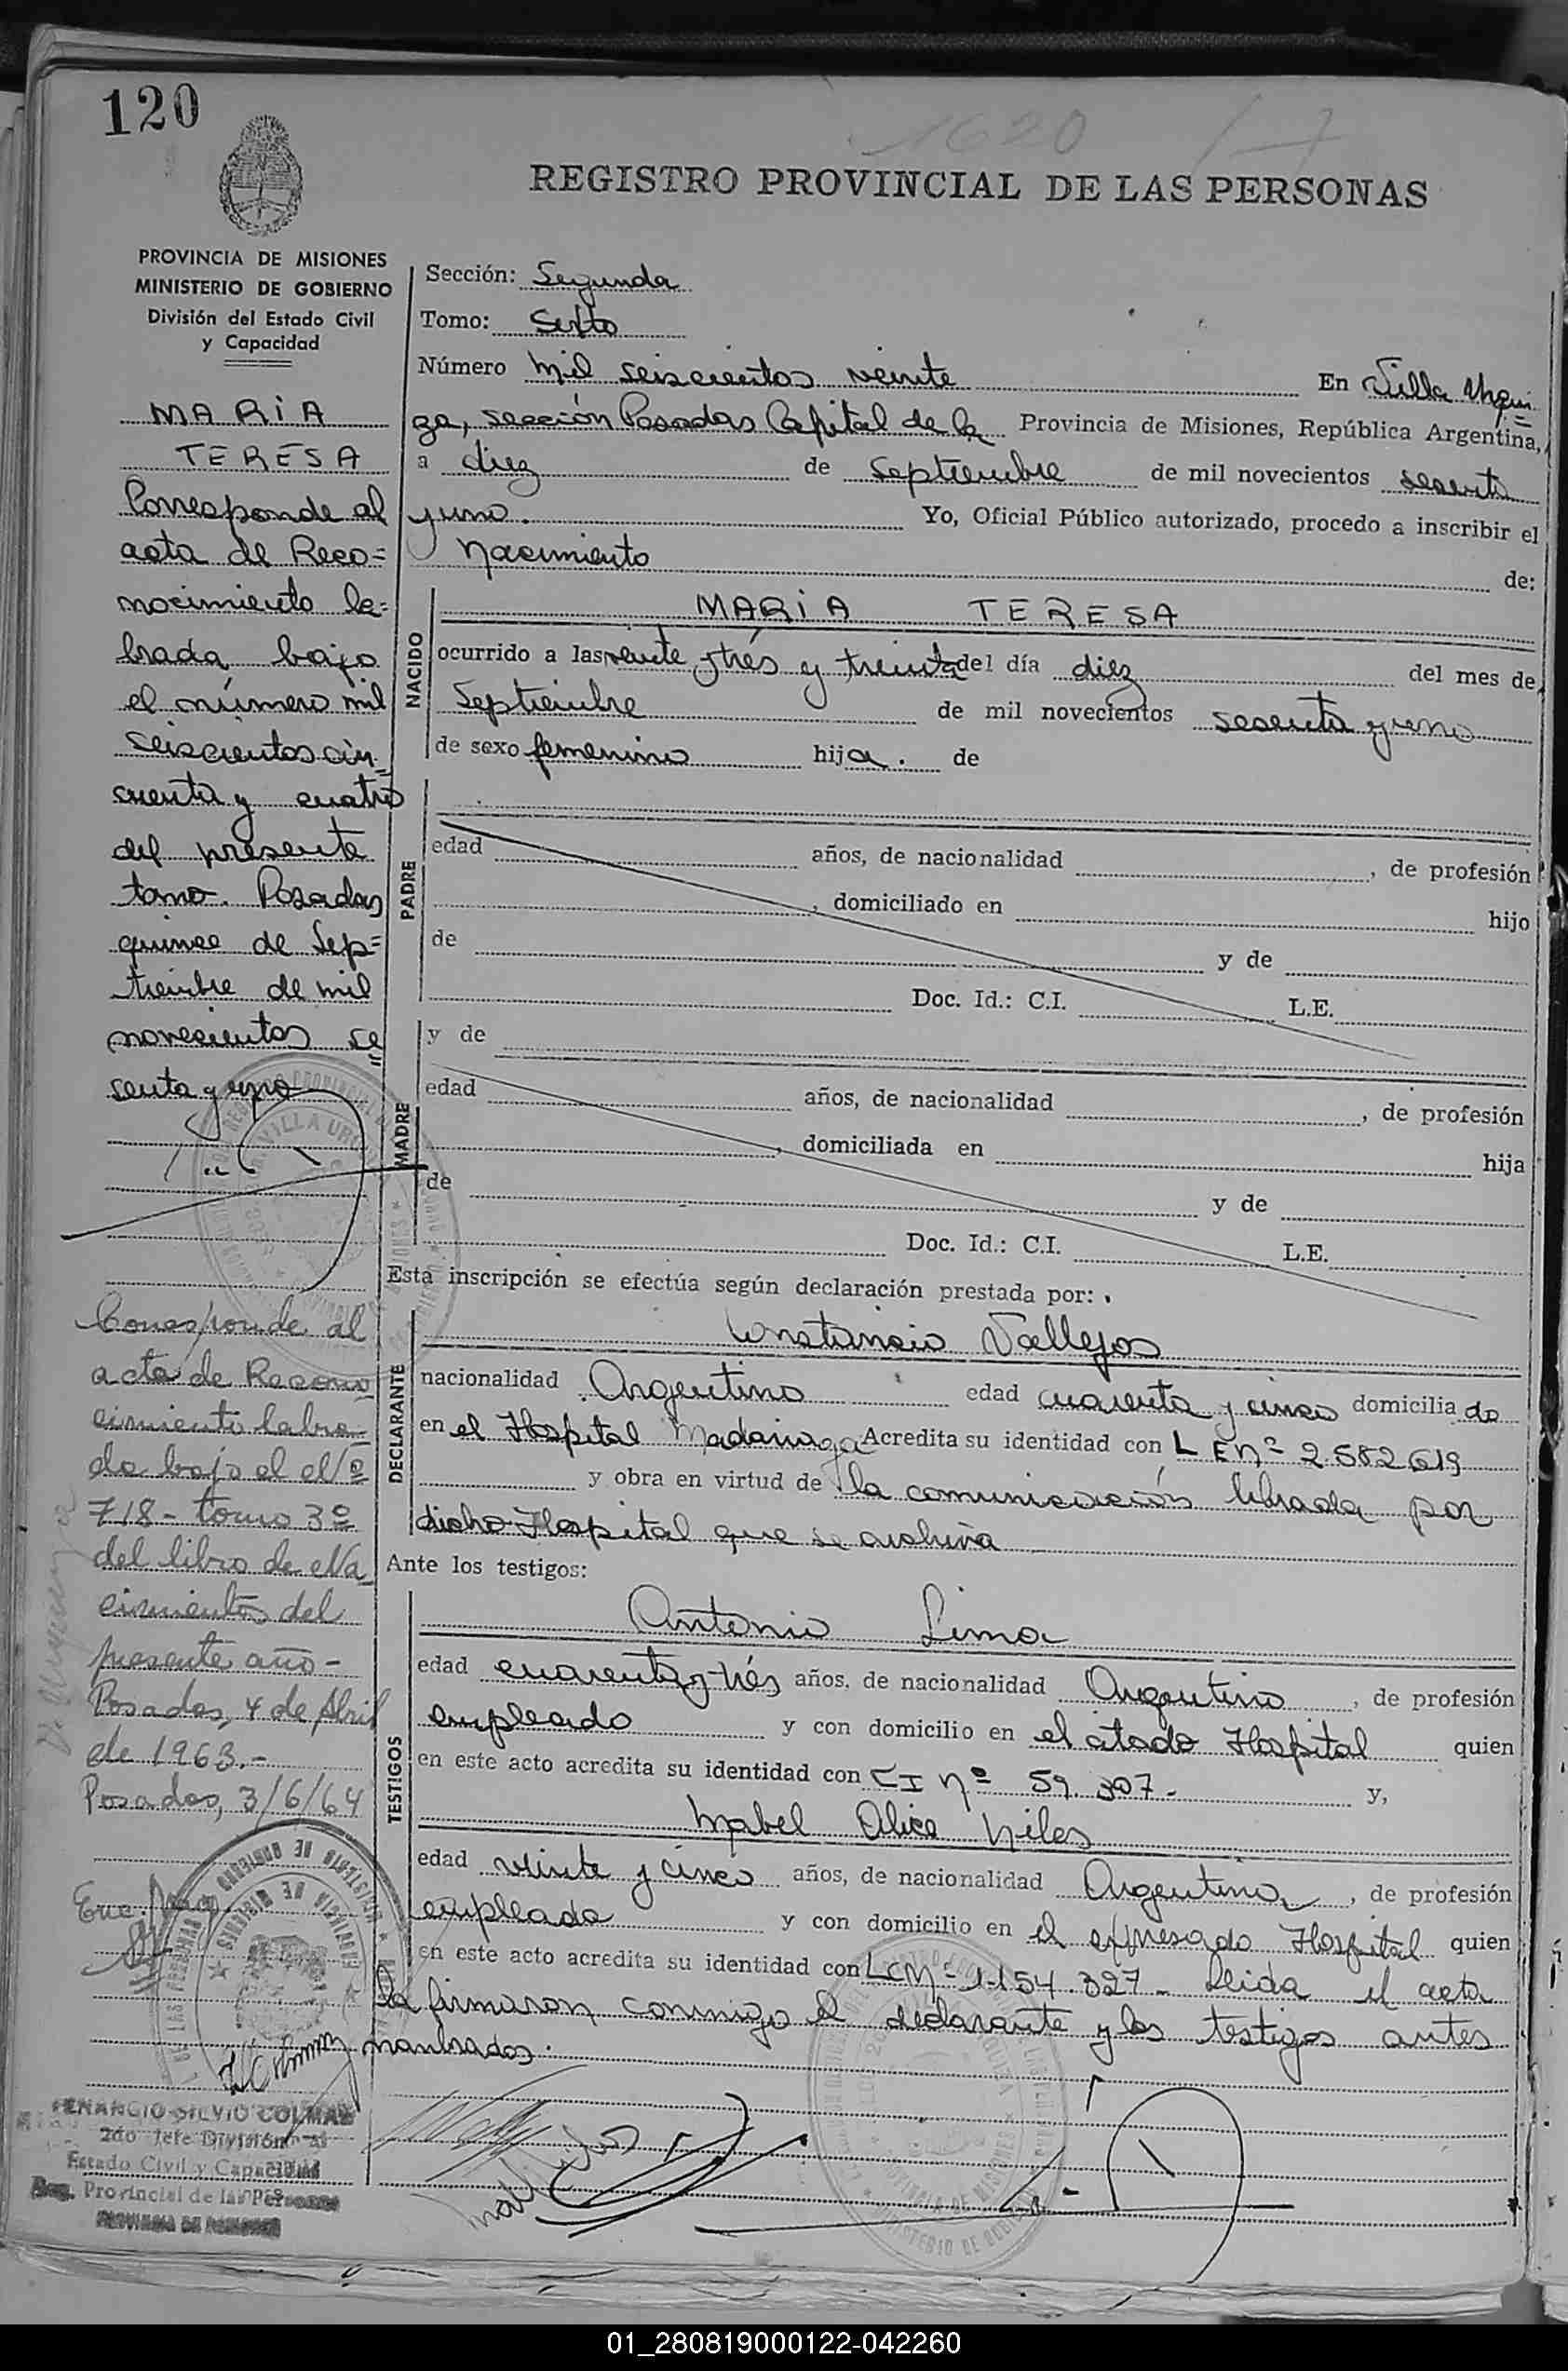 120
1620
REGISTRO PROVINCIAL DE LAS PERSONAS
PROVINCIA DE MISIONES
MINISTERIO DE GOBIERNO
División del Estado Civil
y Capacidad
MARIA
TERESA
Corresponde al
acta de Reco=
nocimiento la=
brada bajo
el número mil
seiscientos cin=
cuenta y cuatro
del presente
tomo. Posadas
quince de Sep=
tiembre de mil
novecientos se=
senta y uno
Corresponde al
acta de Recono
cimiento labra-
da bajo el Nº
718 - tomo 3º
del libro de Na-
cimientos del
presente año-
Posadas, 4 de Abril
de 1963.-
Posadas, 3/6/64
VENANCIO SILVIO COLMAN
2do Jefe División
Estado Civil y Capacidad
Reg. Provincial de las Personas
PROVINCIA DE MISIONES
Sección: Segunda
Tomo: Sexto
Número mil seiscientos veinte En Villa Urqui=
za, sección Posadas Capital de la Provincia de Misiones, República Argentina,
a diez de Septiembre de mil novecientos sesenta
y uno. Yo, Oficial Público autorizado, procedo a inscribir el
Nacimiento de:
NACIDO
MARIA TERESA
ocurrido a las veinte y trés y treinta del día diez del mes de
Septiembre de mil novecientos sesenta y uno
de sexo femenino hija. de
PADRE
edad años, de nacionalidad , de profesión
, domiciliado en hijo
de y de
Doc. Id.: C.I. L.E.
y de
MADRE
edad años, de nacionalidad , de profesión
, domiciliada en hija
de y de
Doc. Id.: C.I. L.E.
Esta inscripción se efectúa según declaración prestada por:
DECLARANTE
Constancio Vallejos
nacionalidad Argentino edad cuarenta y cinco domiciliado
en el Hospital Madariaga Acredita su identidad con L E nº 2.582.619
y obra en virtud de la comunicación librada por
dicho Hospital que se archiva
Ante los testigos:
TESTIGOS
Antonio Lima
edad cuarenta y trés años, de nacionalidad Argentino , de profesión
empleado y con domicilio en el citado Hospital quien
en este acto acredita su identidad con CI Nº 59.307.- y,
Mabel Alice Niles
edad veinte y cinco años, de nacionalidad Argentina , de profesión
empleada y con domicilio en el expresado Hospital quien
en este acto acredita su identidad con LC Nº 1.154.327.- Leida el acta
la firmaron conmigo el declarante y los testigos antes
nombrados.
01_280819000122-042260